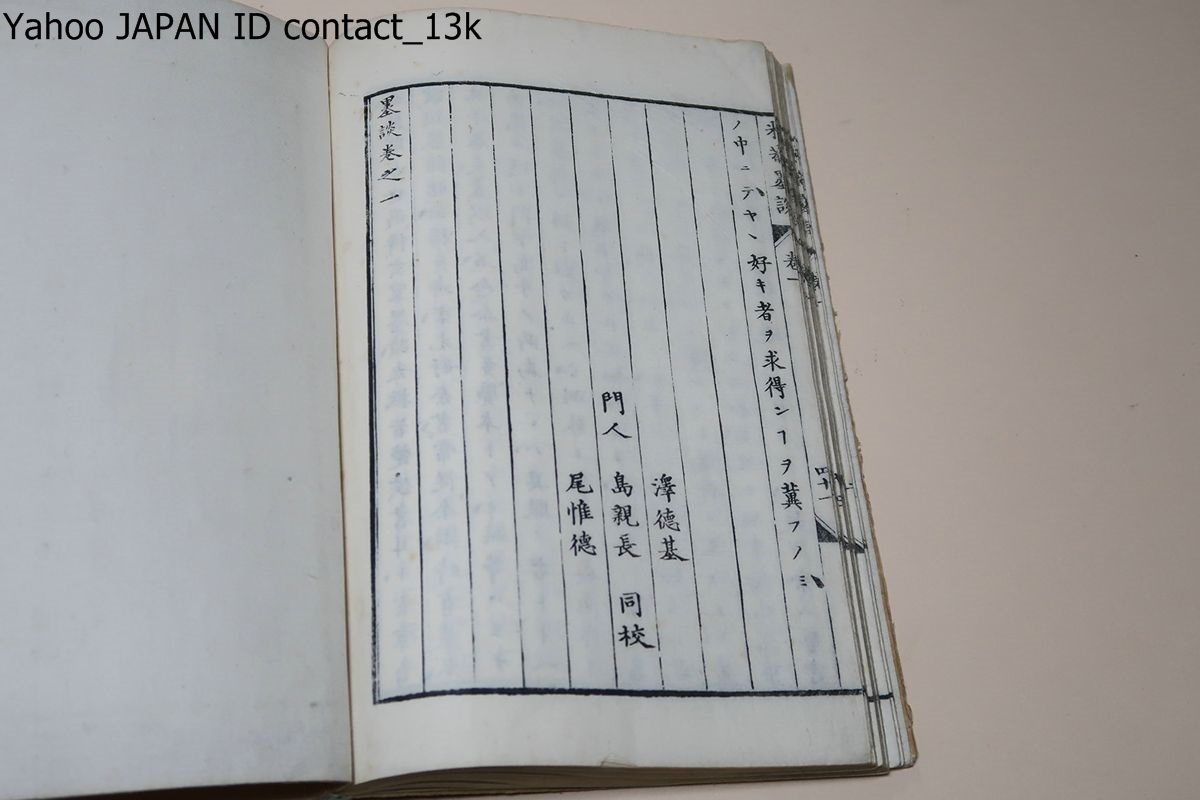 Yahoo JAPAN ID contact_13k
米菴墨談
卷一
四十一
ノ中ニテヤヽ好キ者ヲ求得ンヿヲ冀フノミ
澤德基
門人 島親長 同校
尾惟德
墨談卷之一